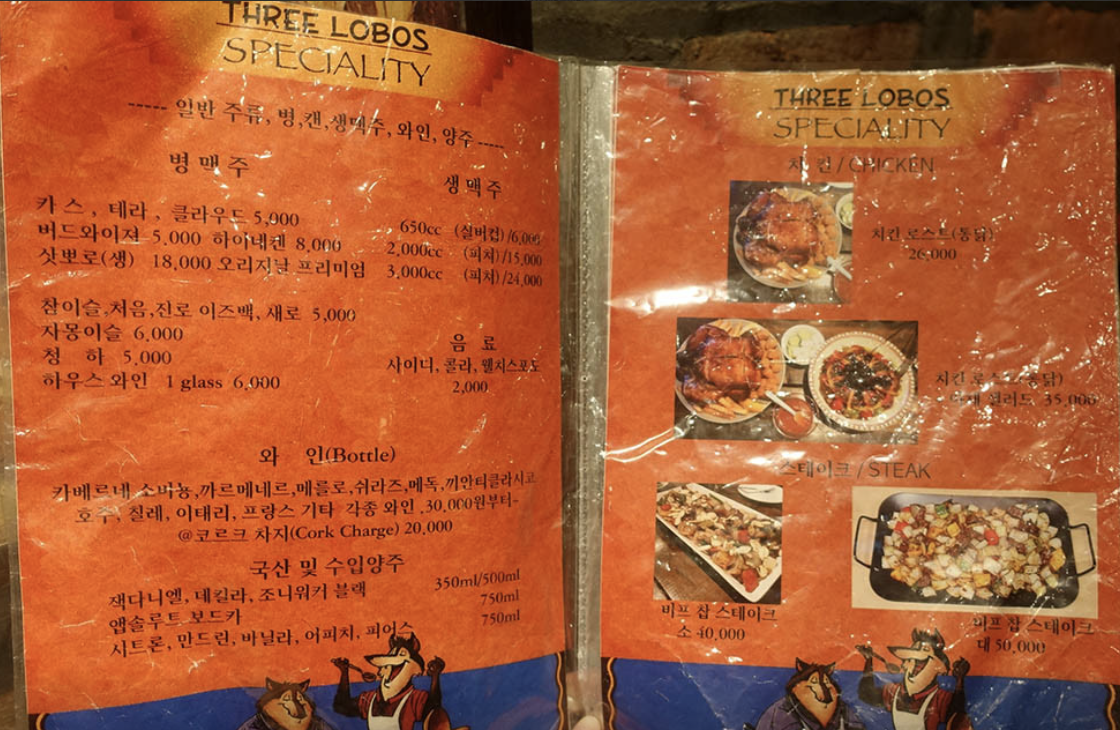 THREE LOBOS
SPECIALITY
----- 일반 주류, 병,캔,생맥주, 와인, 양주 -----
병 맥 주
카 스 , 테라 , 클라우드 5,000
버드와이젼 5,000 하이네켄 8,000
삿뽀로(생) 18,000 오리지날 프리미엄
생 맥 주
650cc (실버컵) /6,000
2,000cc (피처) /15,000
3,000cc (피처) /24,000
참이슬,처음,진로 이즈백, 새로 5,000
자몽이슬 6,000
청 하 5,000
하우스 와인 1 glass 6,000
음 료
사이다, 콜라, 웰치스포도
2,000
와 인(Bottle)
카베르네 소비뇽,까르메네르,메를로,쉬라즈,메독,끼안티클라시코
호주, 칠레, 이태리, 프랑스 기타 각종 와인 .30,000원부터~
@코르크 차지(Cork Charge) 20,000
국산 및 수입양주
잭다니엘, 데킬라, 조니워커 블랙 350ml/500ml
앱솔루트 보드카 750ml
시트론, 만드린, 바닐라, 어피치, 피어스 750ml
THREE LOBOS
SPECIALITY
치 킨 / CHICKEN
치킨 로스트(통닭)
26,000
치킨 로스트(통닭)
샐러드 35,000
스테이크 / STEAK
비프 찹 스테이크
소 40,000
비프 찹 스테이크
대 50,000